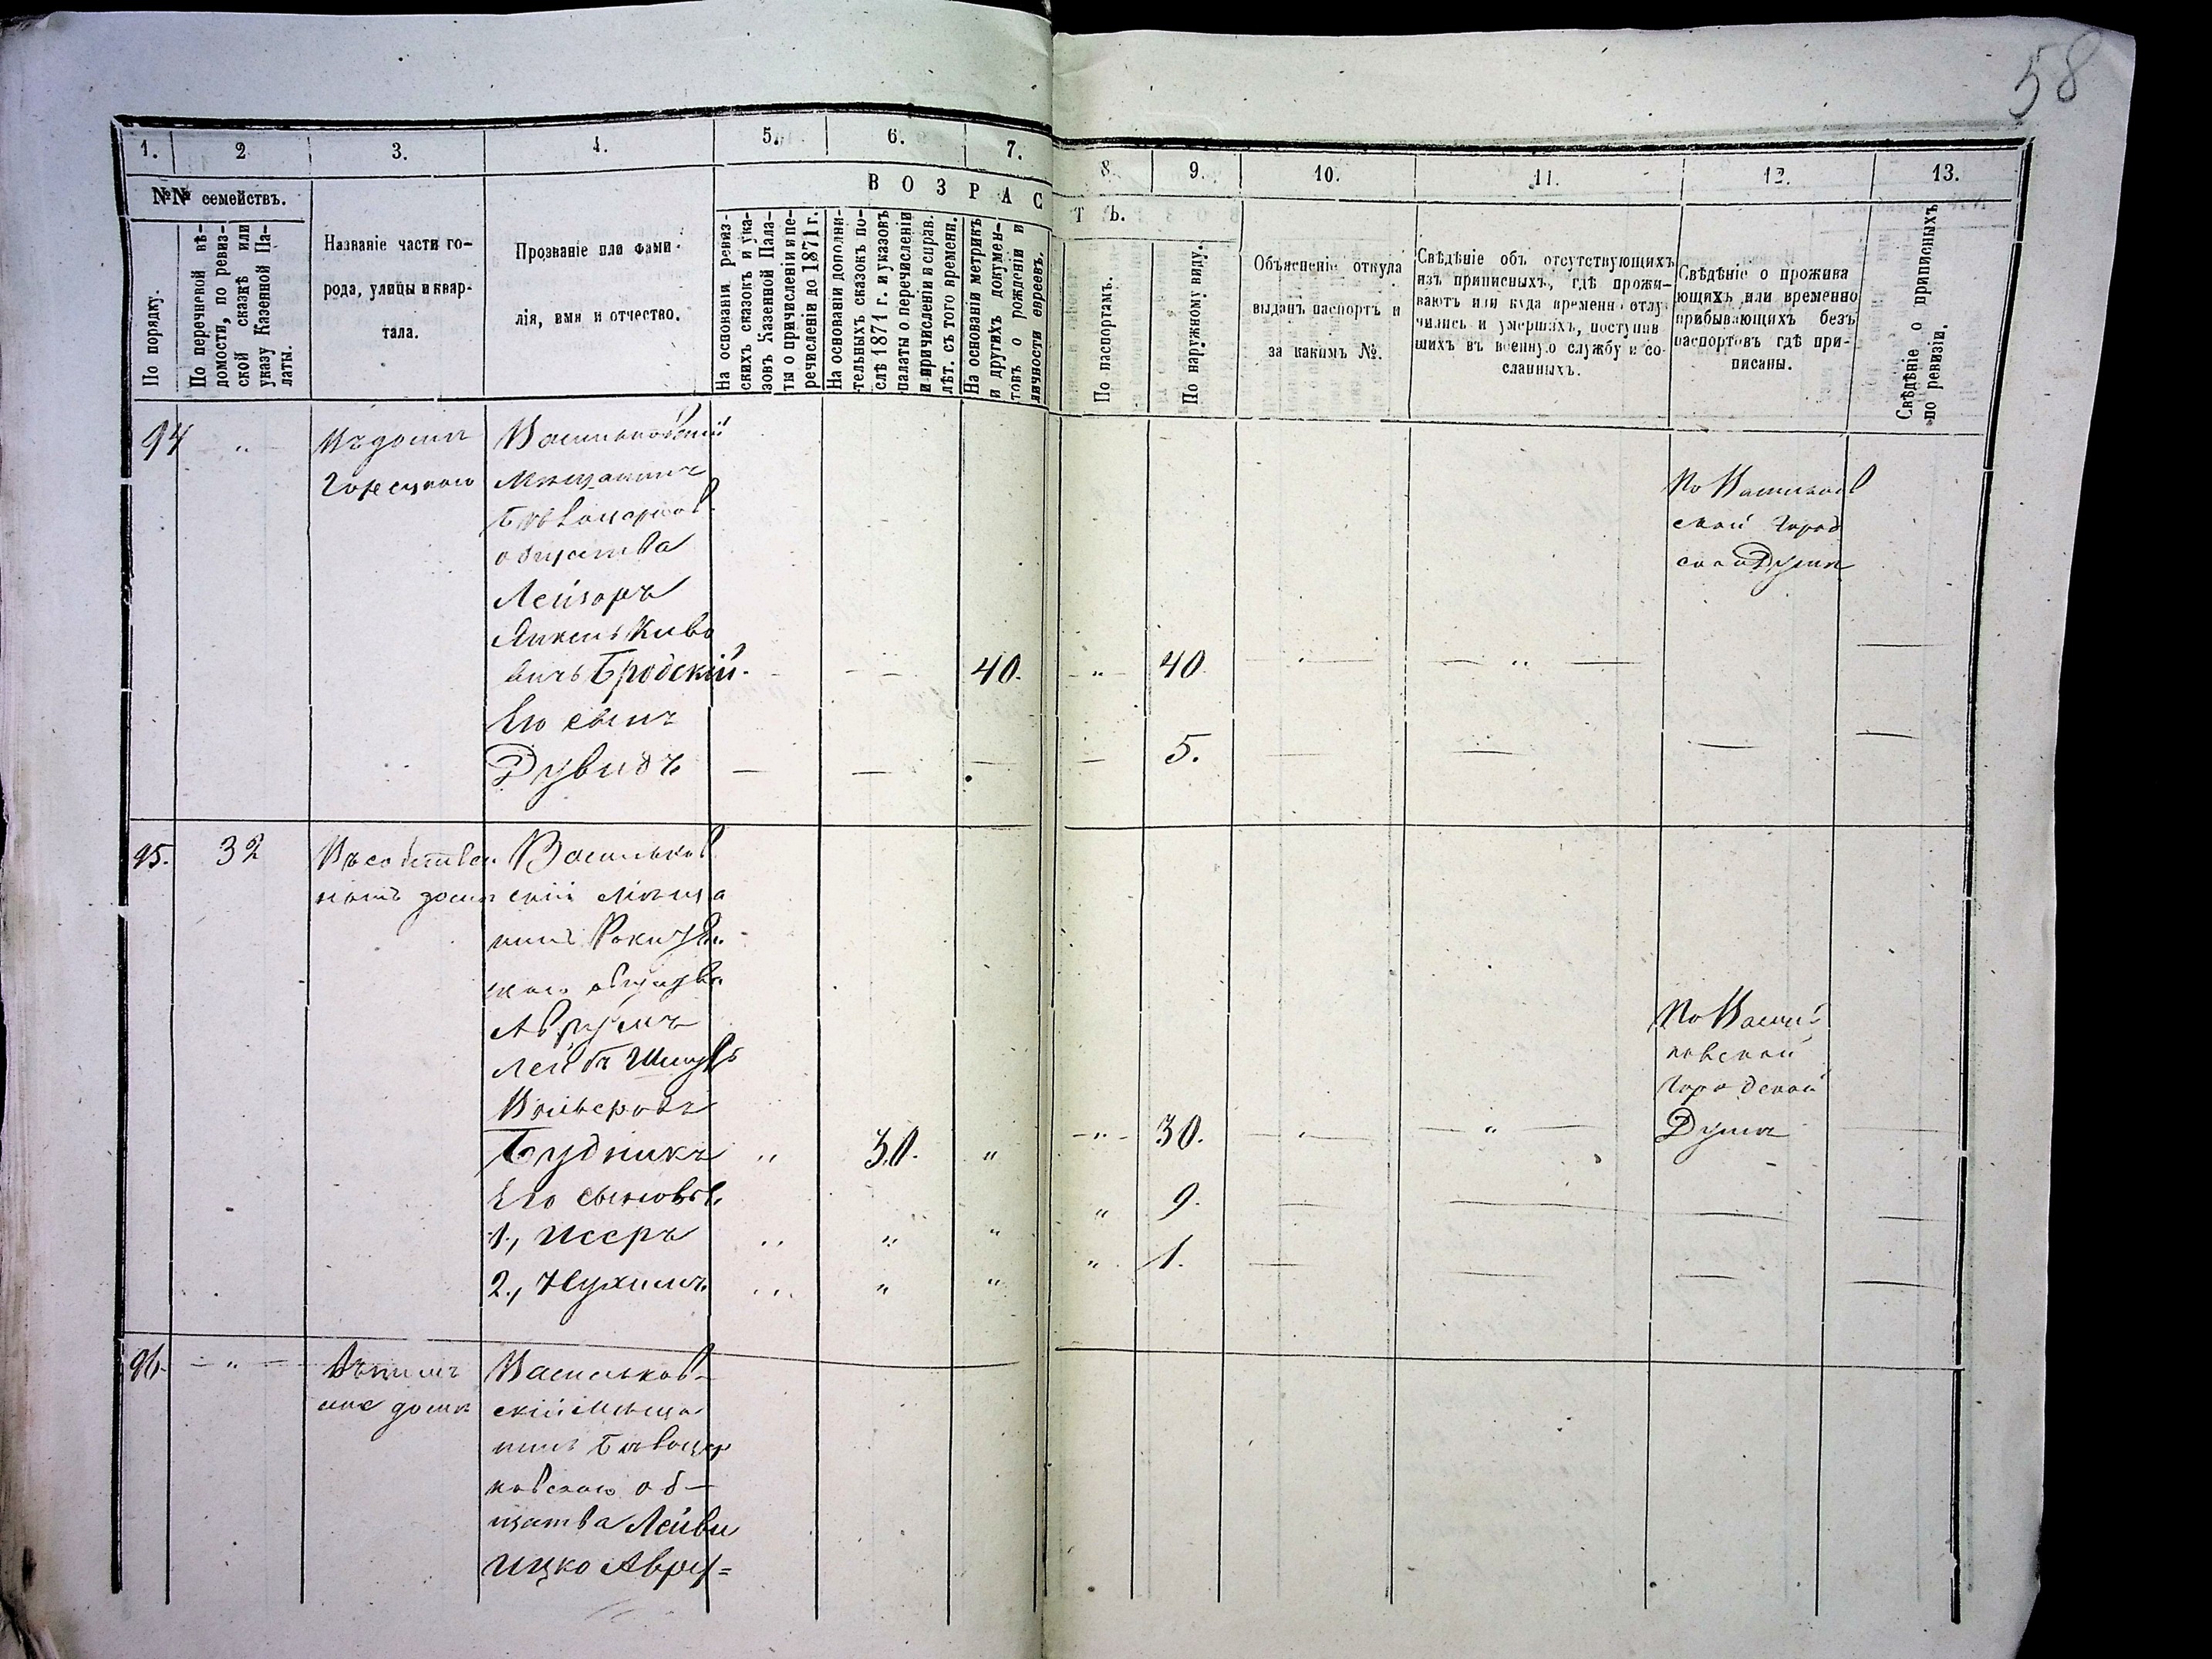 58
1. 2 3. 4. 5. 6. 7. 8. 9. 10. 11. 12. 13.
№№ семействъ.
В О З Р А С Т Ъ.
По порядку.
По перечневой вѣ-
домости, по ревиз-
ской сказкѣ или
указу Казенной Па-
латы.
Названіе части го-
рода, улицы и квар-
тала.
Прозваніе или фами-
лія, имя и отчество.
На основаніи ревиз-
скихъ сказокъ и ука-
зовъ Казенной Пала-
ты о причисленіи и пе-
речисленіи до 1871 г.
На основаніи дополни-
тельныхъ сказокъ по-
слѣ 1871 г. и указовъ
палаты о перечисленіи
и причисленіи и справ.
лѣт. съ того времени.
На основаніи метрикъ
и другихъ докумен-
товъ о рожденіи и
личности евреевъ.
По паспортамъ.
По наружному виду.
Объясненіе откуда
выданъ паспортъ и
за какимъ №.
Свѣдѣніе объ отсутствующихъ
изъ приписныхъ, гдѣ прожи-
ваютъ или куда временн. отлу-
чились и умершихъ, поступив
шихъ въ военную службу и со-
сланныхъ.
Свѣдѣніе о прожива
ющихъ или временно
прибывающихъ безъ
паспортовъ гдѣ при-
писаны.
Свѣдѣніе о приписныхъ
по ревизіи.
94 „ Въ домѣ
Васильковскій
мѣщанинъ
общества
Лейзоръ
Янкель Киво
вичъ Бродскій. 40. „ 40.
По Васильков
ской Город
ской Думѣ
Его сынъ
Дувидъ 5.
95. 32 Въ собствен
номъ домѣ
Васильков
скій мѣща
нинъ
Аврумъ
Лейбъ
Будникъ „ 30. „ „ 30. „ „
По Василь
ковской
Городской
Думѣ
Его сыновья
1., Иссеръ „ „ „ „ 9.
2., Нухимъ „ „ „ „ 1.
96. „
домѣ
Васильков-
скій мѣща
нинъ Бѣлоцер
ковскаго об-
щества Лейви
Ицко Авру=